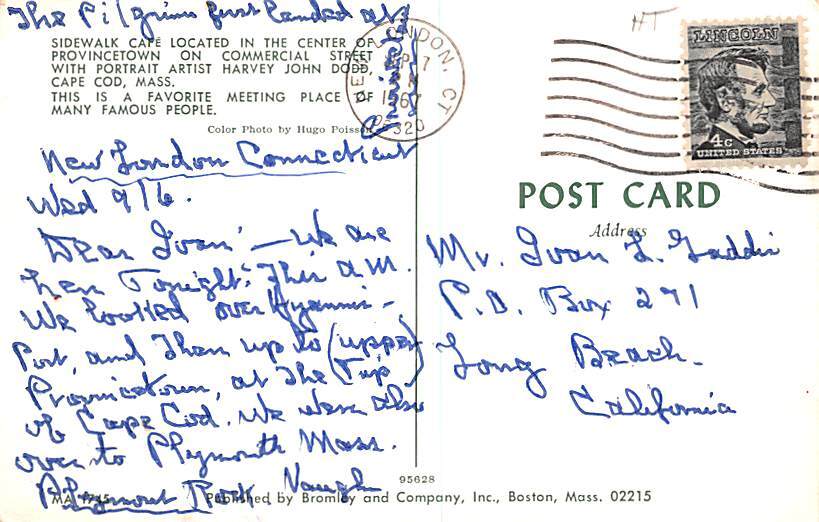 The Pilgrims first landed at
SIDEWALK CAFE LOCATED IN THE CENTER OF
PROVINCETOWN ON COMMERCIAL STREET
WITH PORTRAIT ARTIST HARVEY JOHN DODD,
CAPE COD, MASS.
THIS IS A FAVORITE MEETING PLACE OF
MANY FAMOUS PEOPLE.
Color Photo by Hugo Poisson
LONDON, CT
SEP 7
1967
06320
LINCOLN
4c
UNITED STATES
New London Connecticut
Wed 9/6.
Dear Ivan' – We are
here Tonight. This a.m.
We looked over Hyannis-
Port, and Then up to (upper
Provincetown, at The (Tip
of Cape Cod. We were also
over to Plymouth Mass.
Plymouth Rock Vaughn
POST CARD
Address
Mr. Ivan L. Gaddis
P.O. Box 291
Long Beach-
California
95628
Published by Bromley and Company, Inc., Boston, Mass. 02215